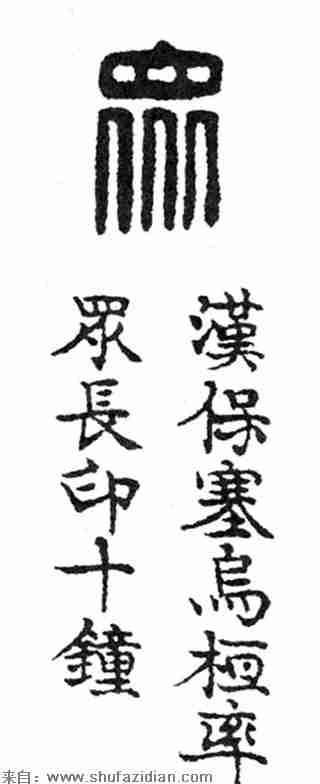 眾
漢保塞烏桓率
眾長印十鐘
来自：www.shufazidian.com